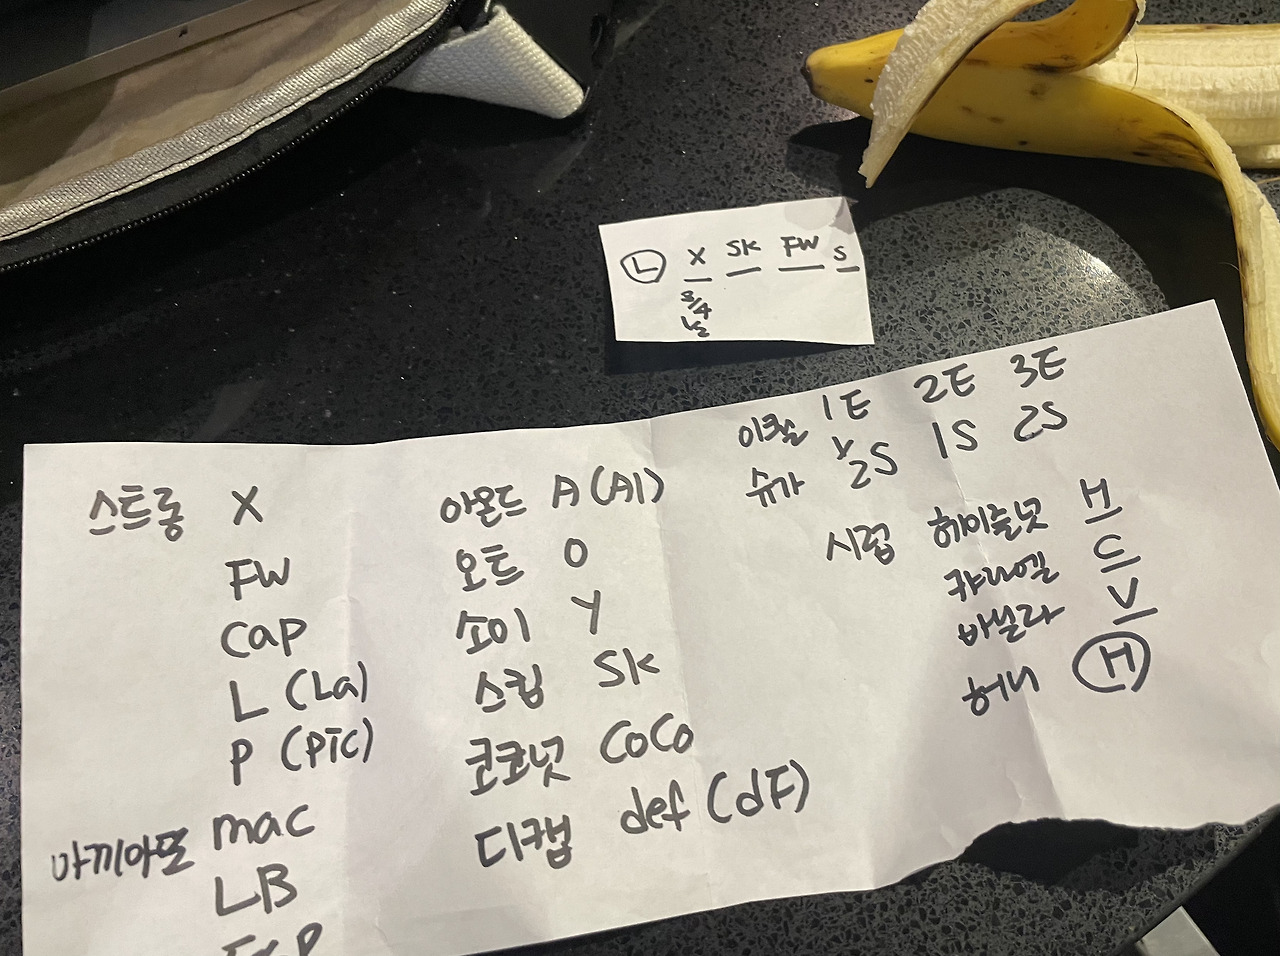 L X SK FW S
3/4
1/2
이퀄 1E 2E 3E
슈가 1/2S 1S 2S
시럽 헤이즐넛 H
캬라멜 C
바닐라 V
허니 H
스트롱 X
FW
cap
L (La)
P (Pic)
마끼아또 mac
LB
아몬드 A (Al)
오트 O
소이 Y
스킴 SK
코코넛 CoCo
디캡 def (dF)